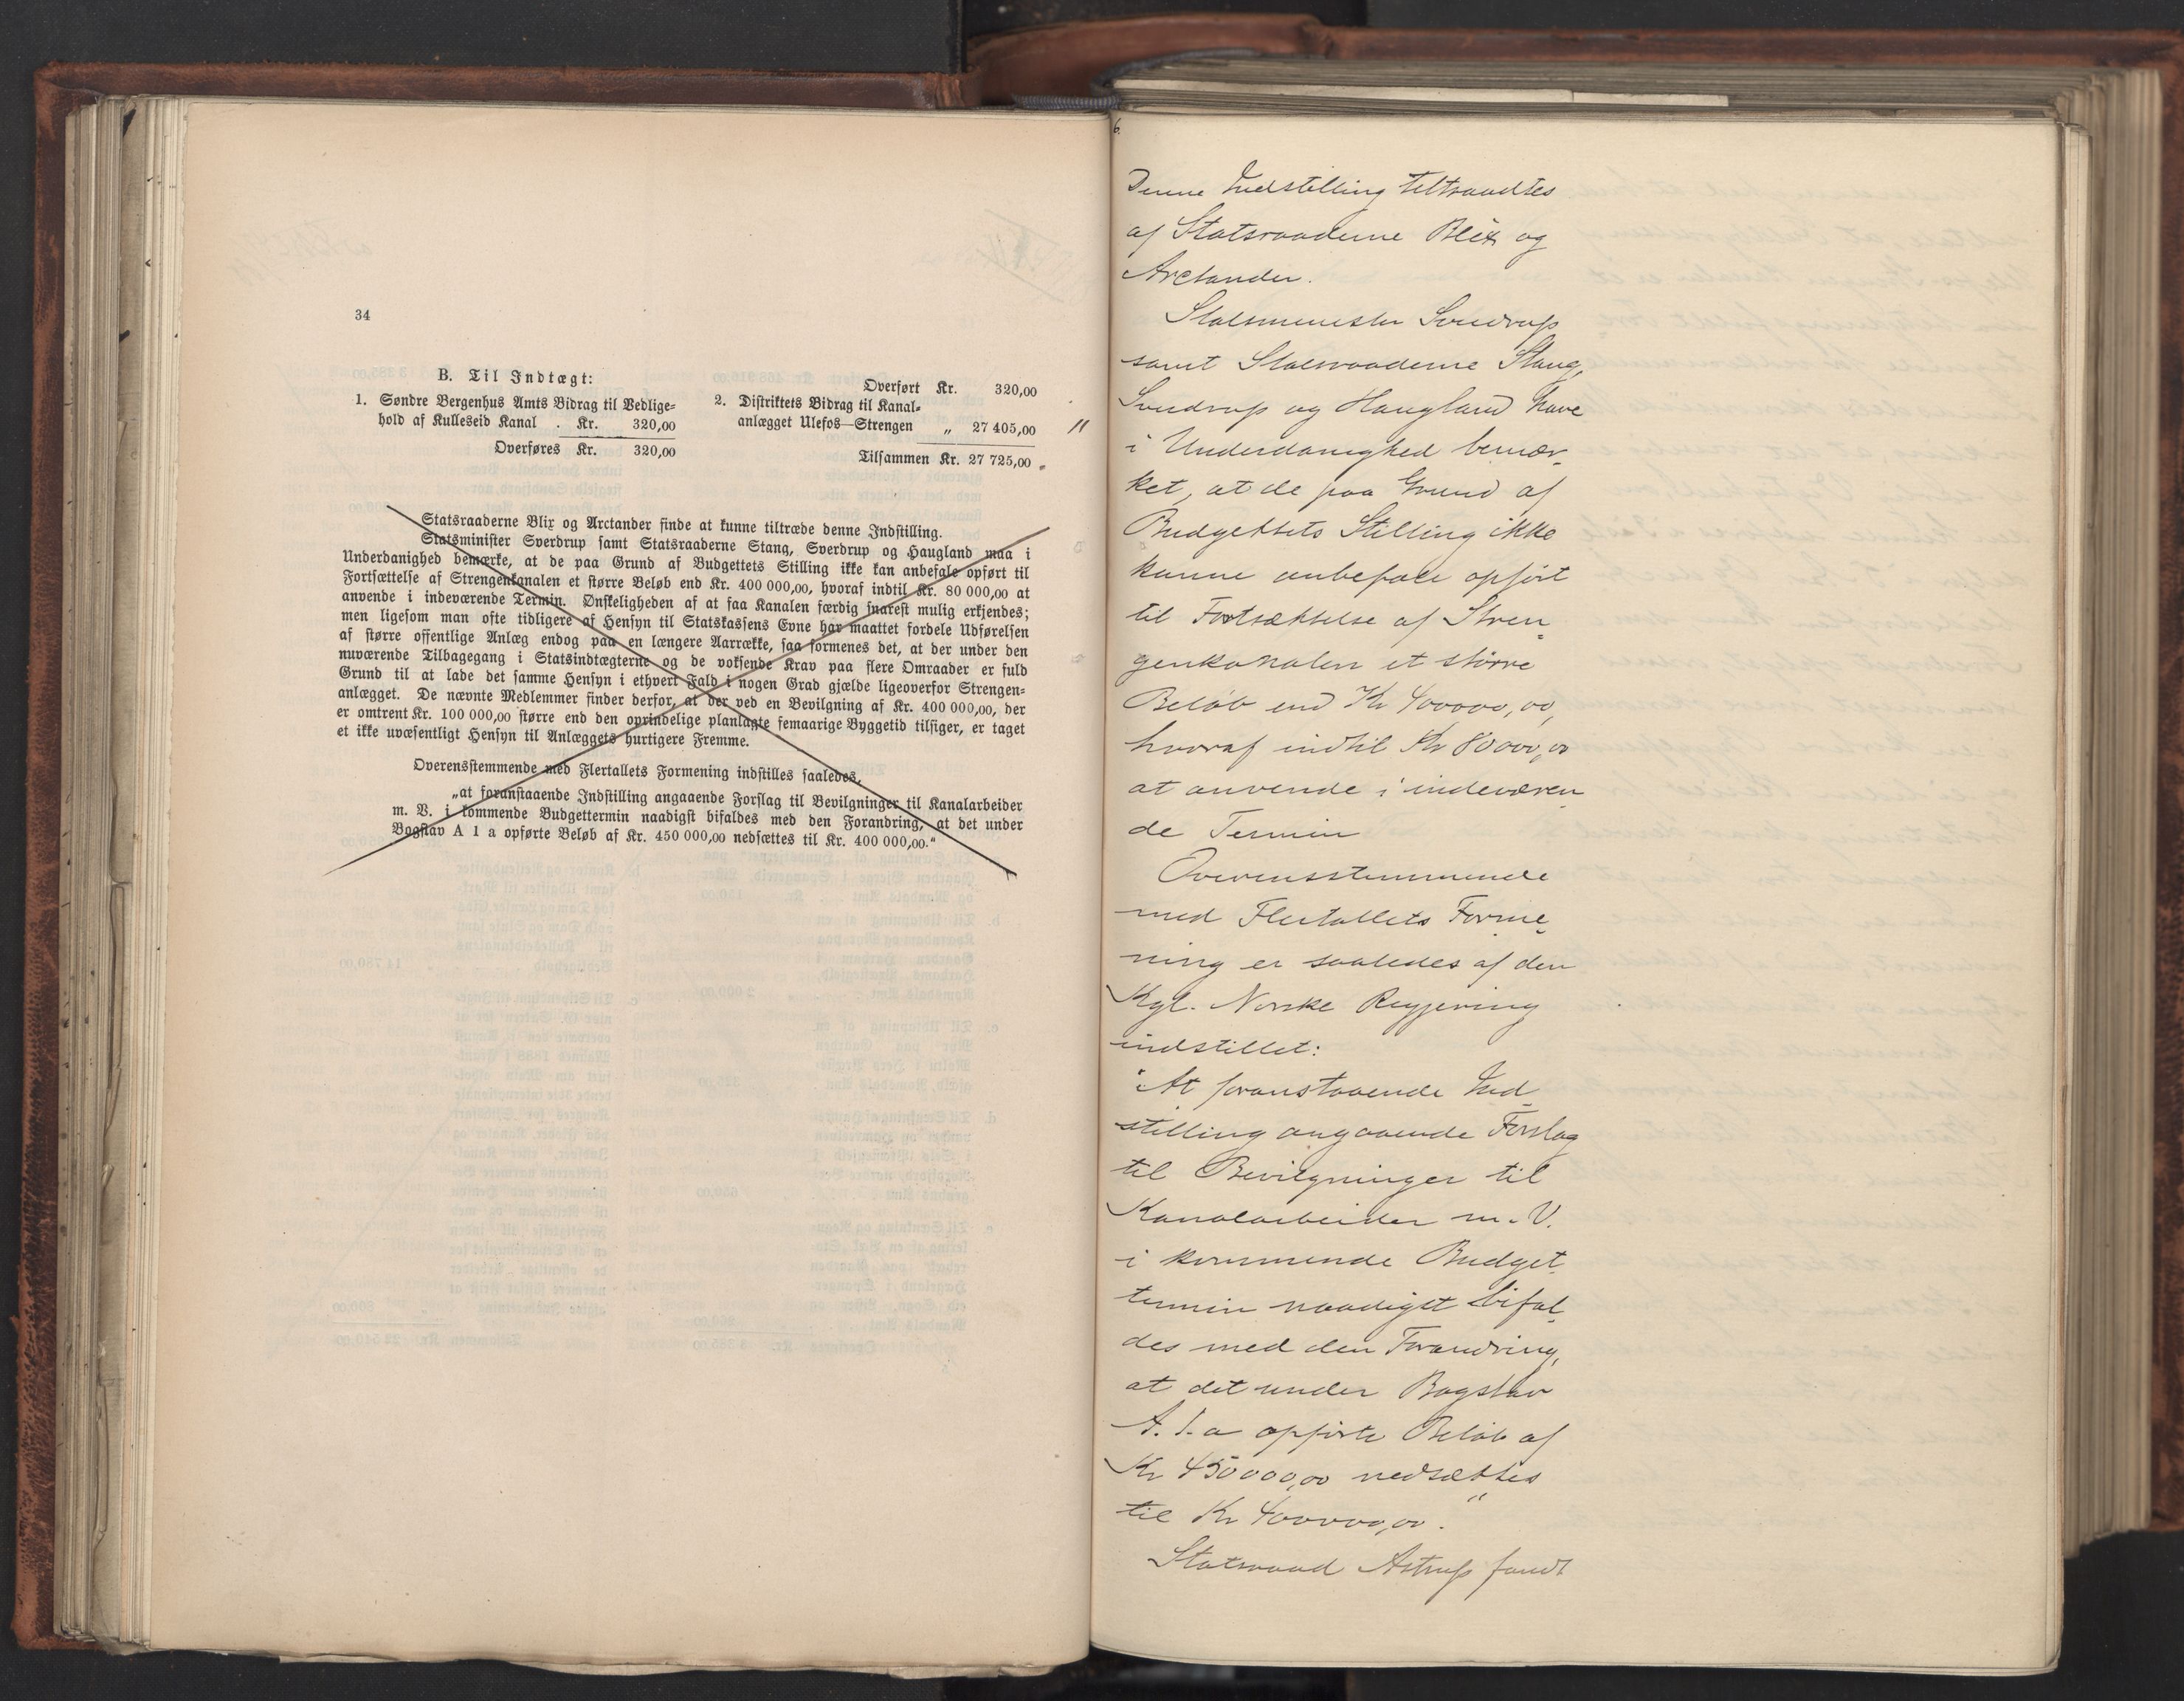 34
B. Til Indtægt:
1. Søndre Bergenhus Amts Bidrag til Vedlige=
hold af Kulleseid Kanal . Kr. 320,00
Overføres Kr. 320,00
Overført Kr. 320,00
2. Distriktets Bidrag til Kanal=
anlægget Ulefos—Strengen „ 27 405,00
Tilsammen Kr. 27 725,00
Statsraaderne Blix og Arctander finde at kunne tiltræde denne Indstilling.
Statsminister Sverdrup samt Statsraaderne Stang, Sverdrup og Haugland maa i
Underdanighed bemærke, at de paa Grund af Budgettets Stilling ikke kan anbefale opført til
Fortsættelse af Strengenkanalen et større Beløb end Kr. 400 000,00, hvoraf indtil Kr. 80 000,00 at
anvende i indeværende Termin. Ønskeligheden af at faa Kanalen færdig snarest mulig erkjendes;
men ligesom man ofte tidligere af Hensyn til Statskassens Evne har maattet fordele Udførelsen
af større offentlige Anlæg endog paa en længere Aarrække, saa formenes det, at der under den
nuværende Tilbagegang i Statsindtægterne og de voksende Krav paa flere Omraader er fuld
Grund til at lade det samme Hensyn i ethvert Fald i nogen Grad gjælde ligeoverfor Strengen=
anlægget. De nævnte Medlemmer finder derfor, at der ved en Bevilgning af Kr. 400 000,00, der
er omtrent Kr. 100 000,00 større end den oprindelige planlagte femaarige Byggetid tilsiger, er taget
et ikke uvæsentligt Hensyn til Anlæggets hurtigere Fremme.
Overensstemmende med Flertallets Formening indstilles saaledes,
„at foranstaaende Indstilling angaaende Forslag til Bevilgninger til Kanalarbeider
m. V. i kommende Budgettermin naadigst bifaldes med den Forandring, at det under
Bogstav A 1 a opførte Beløb af Kr. 450 000,00 nedsættes til Kr. 400 000,00.“
6.
Denne Indstilling tiltraadtes
af Statsraaderne Blix og
Arctander.
Statsminister Sverdrup
samt Statsraaderne Stang,
Sverdrup og Haugland have
i Underdanighed bemær-
ket, at de paa Grund af
Budgettets Stilling ikke
kunne anbefale opført
til Fortsættelse af Stren-
genkanalen et større
Beløb end Kr 400000,00,
hvoraf indtil Kr 80000,00
at anvende i indeværen-
de Termin
Overensstemmende
med Flertallets Forme-
ning er saaledes af den
Kgl. Norske Regjering
indstillet:
"At foranstaaende Ind-
stilling angaaende Forslag
til Bevilgninger til
Kanalarbeider m. V.
i kommende Budget-
termin naadigst bifal-
des med den Forandring,
at det under Bogstav
A. 1. a opførte Beløb af
Kr 450000,00 nedsættes
til Kr 400000,00."
Statsraad Astrup fandt